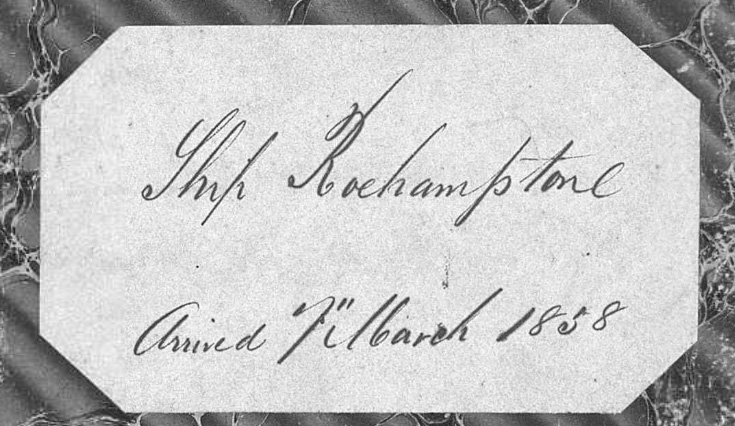 Ship Roehampstone
Arrived 7" March 1858